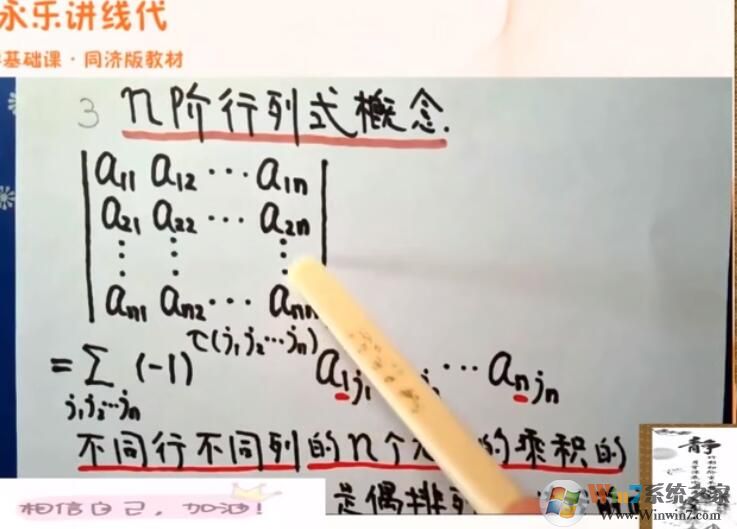 永乐讲线代
基础课·同济版教材
3 n阶行列式概念.
a₁₁ a₁₂ ⋯ a₁ₙ
a₂₁ a₂₂ ⋯ a₂ₙ
⋮ ⋮ ⋮
aₙ₁ aₙ₂ ⋯ aₙₙ
= Σ (-1) τ(j₁j₂⋯jₙ) a₁j₁ ⋯ aₙjₙ
j₁j₂⋯jₙ
不同行不同列的n个 的乘积的
是偶排
相信自己，加油！
静
Win7系统之家
Www.Winwin7.com